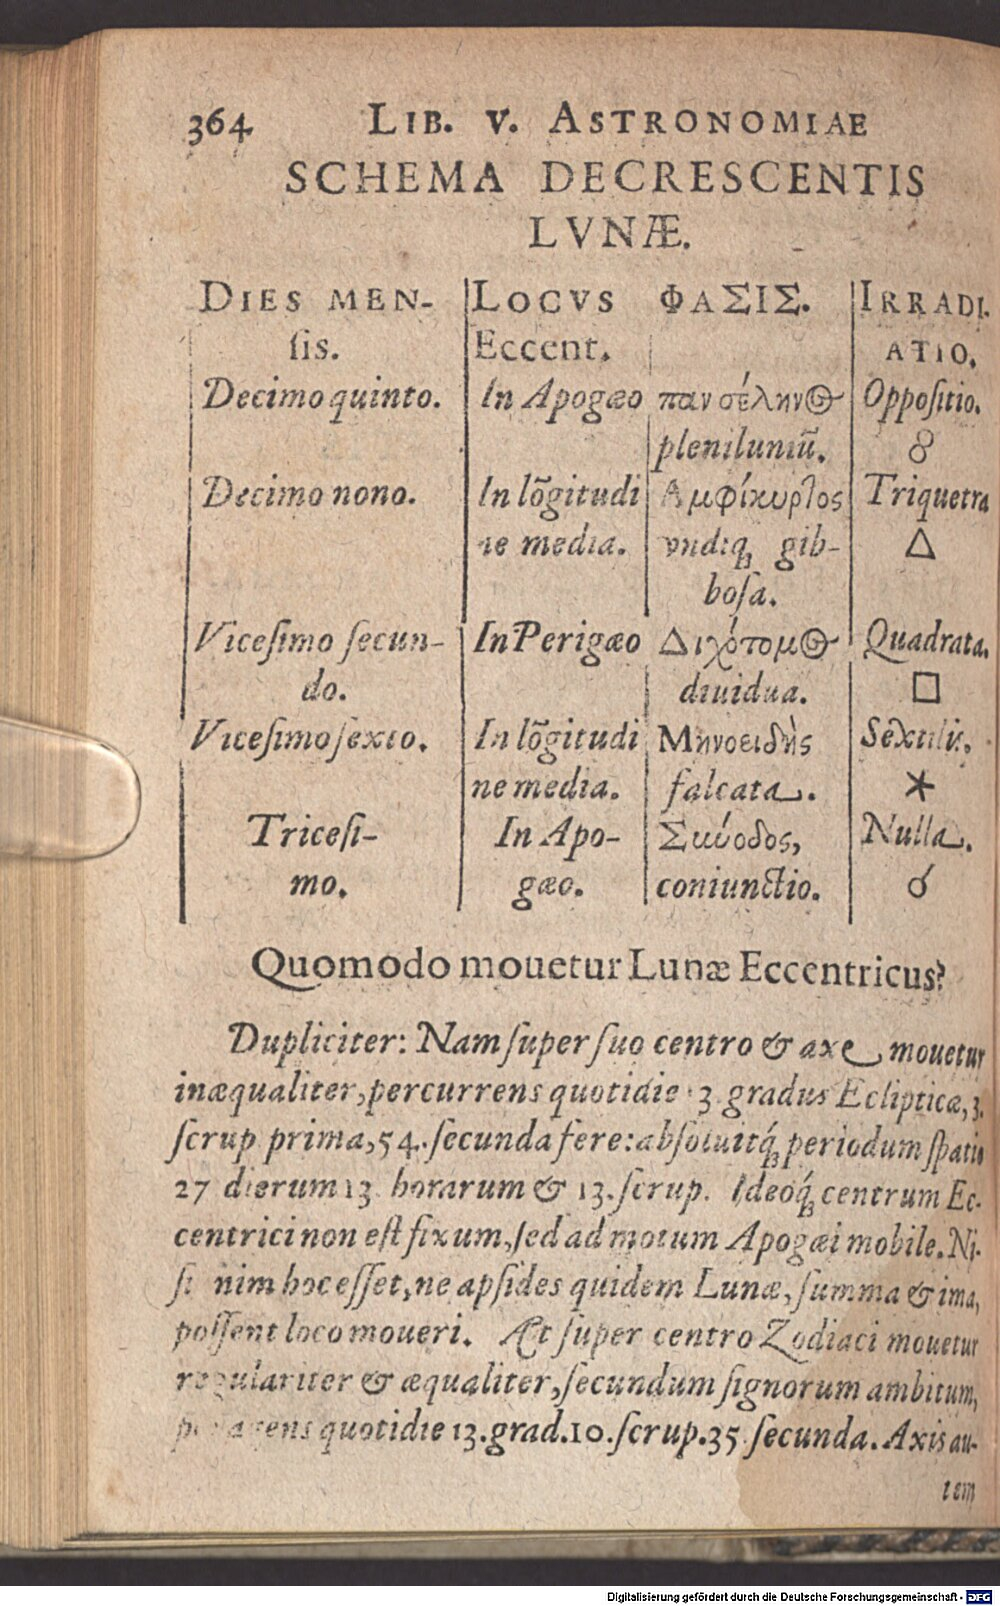 364 LIB. V. ASTRONOMIAE
SCHEMA DECRESCENTIS
LVNÆ.
DIES MEN- LOCVS ΦΑΣΙΣ. IRRADI-
ſis. Eccent. ATIO.
Decimo quinto. In Apogæo πανσέληνος Oppoſitio.
pleniluniū. ☍
Decimo nono. In lōgitudi Αμφίκυρτος Triquetra
ne media. vndiq; gib- △
boſa.
Viceſimo ſecun- In Perigæo Διχότομος Quadrata.
do. diuidua. □
Viceſimo ſexto. In lōgitudi Μηνοειδὴς Sextilis.
ne media. falcata. ⚹
Triceſi- In Apo- Σκύοδος, Nulla.
mo. gæo. coniunctio. ☌
Quomodo mouetur Lunæ Eccentricus?
Dupliciter: Nam ſuper ſuo centro & axe mouetur
inæqualiter, percurrens quotidie 3 gradus Eclipticæ, 3.
ſcrup prima, 54. ſecunda fere: abſoluitq́; periodum ſpatio
27 dierum 13. horarum & 13. ſcrup. Ideoq́; centrum Ec-
centrici non eſt fixum, ſed ad motum Apogæi mobile. Ni-
ſi nim hoc eſſet, ne apſides quidem Lunæ, ſumma & ima,
poſſent loco moueri. At ſuper centro Zodiaci mouetur
regulariter & æqualiter, ſecundum ſignorum ambitum,
quotidie 13. grad. 10. ſcrup. 35 ſecunda. Axis au-
tem
Digitalisierung gefördert durch die Deutsche Forschungsgemeinschaft - DFG